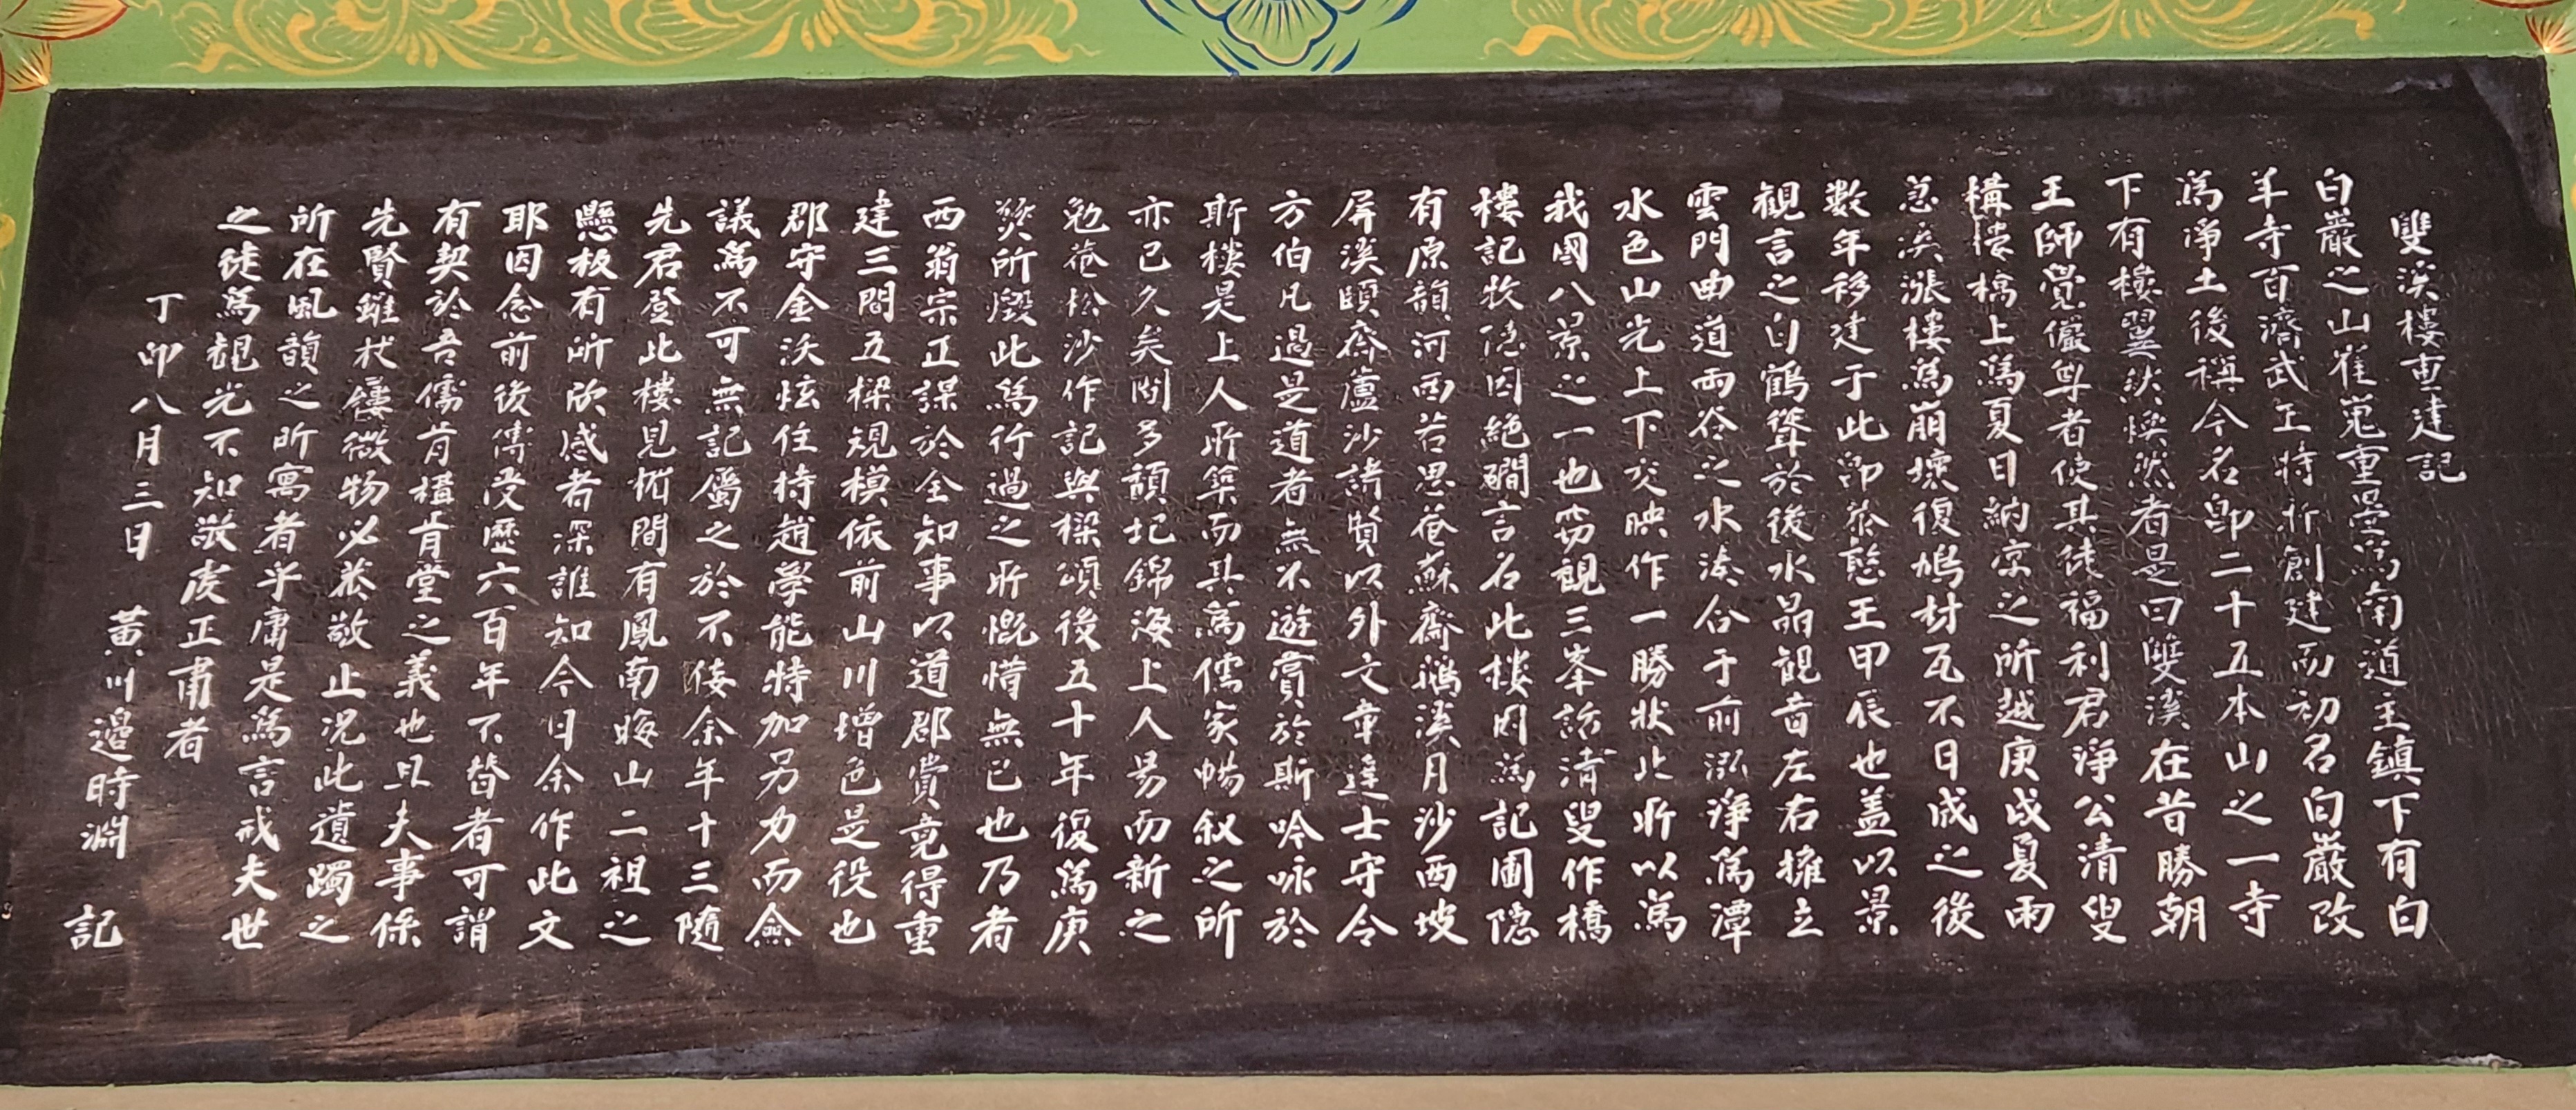 雙溪樓重建記
白巖之山崔嵬重疊爲南道主鎮下有白
羊寺百濟武王時所創建而初名白巖改
爲淨土後稱今名卽二十五本山之一寺
下有樓翼然煥然者是曰雙溪在昔勝朝
王師覺儼尊者使其徒福利君淨公清叟
構樓橋上爲夏日納凉之所越庚戌夏雨
急溪漲樓爲崩壞復鳩材瓦不日成之後
數年移建于此卽恭愍王甲辰也蓋以景
觀言之白鶴聳於後水晶觀音左右擁立
雲門曲道兩谷之水湊合于前泓淨爲潭
水色山光上下交映作一勝狀此所以爲
我國八景之一也昔觀三峯訪清叟作橋
樓記牧隱因絶磵言名此樓因爲記圃隱
有原韻河西若思菴蘇齋鵝溪月沙西坡
屏溪頤齋蘆沙諸賢以外文章達士守令
方伯凡過是道者無不遊賞於斯吟咏於
斯樓是上人所築而其爲儒家暢叙之所
亦已久矣間多頹圮錦海上人易而新之
勉菴松沙作記與樑頌後五十年復爲庚
燹所燬此爲行過之所慨惜無已也乃者
西翁宗正謀於全知事以道郡賞竟得重
建三間五樑規模依前山川增色是役也
郡守金沃炫住持趙學能特加另力而僉
議爲不可無記屬之於不佞余年十三隨
先君登此樓見楣間有鳳南晦山二祖之
懸板有所欣感者深誰知今日余作此文
耶因念前後傳受歷六百年不替者可謂
有契於吾儒肯構肯堂之義也且夫事係
先賢雖杖屨微物必恭敬止况此遺躅之
所在風韻之所寓者乎庸是爲言戒夫世
之徒爲觀光不知敬虔正肅者
丁卯八月三日 黃川邉時淵 記